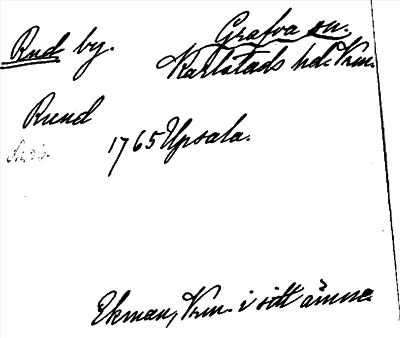 Rud by.
Grafva sn.
Karlstads hd. Vrm.
Rued
1765 Upsala.
Ekman, Vrm. i sitt ämne.